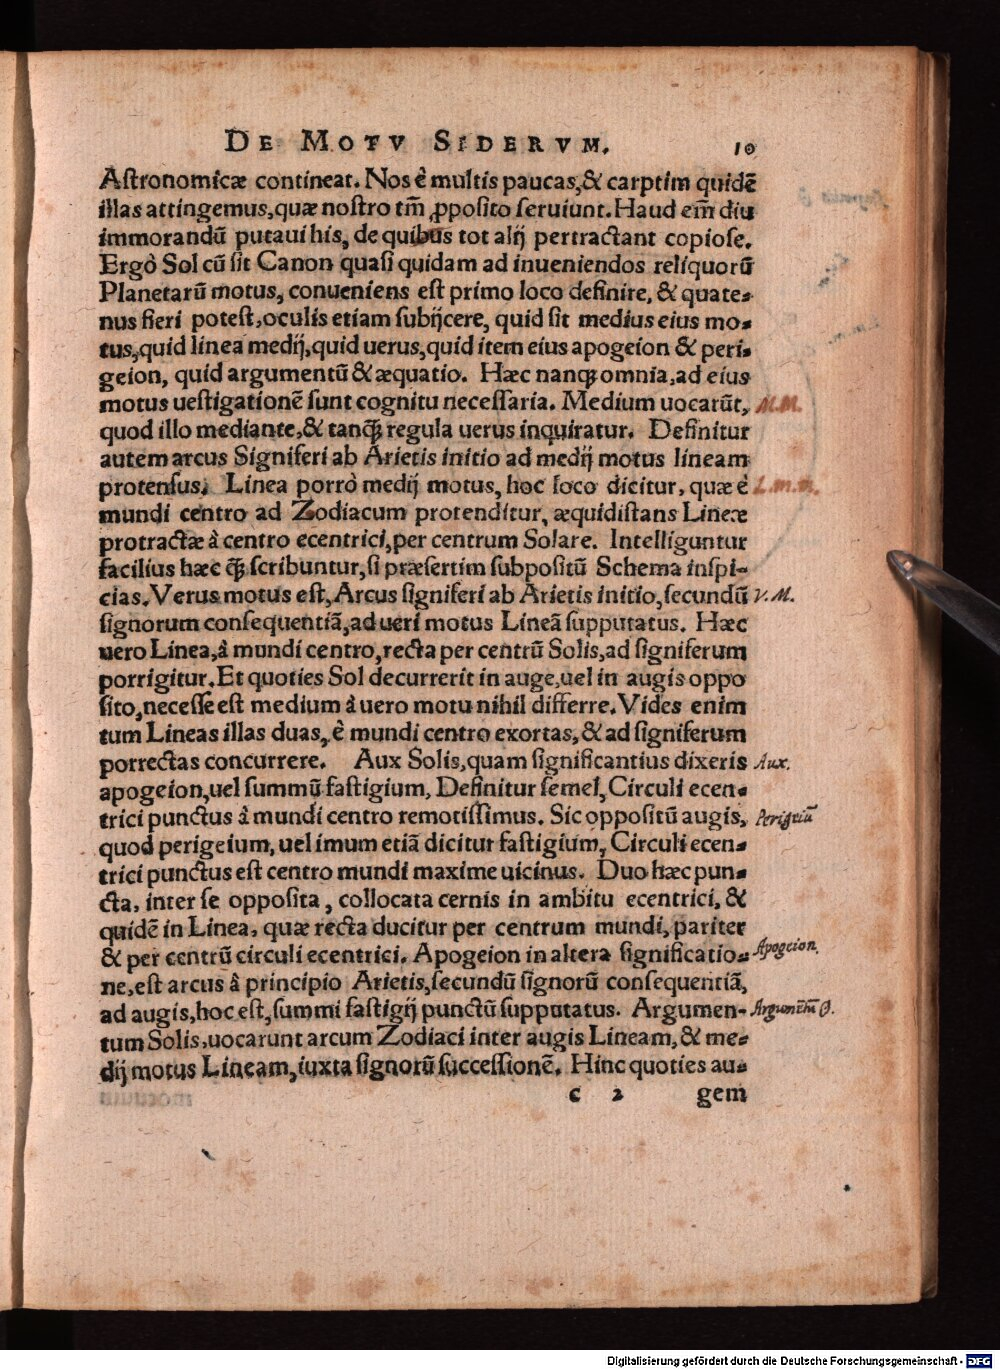 DE MOTV SIDERVM. 10
Astronomicæ contineat. Nos è multis paucas, & carptim quidẽ
illas attingemus, quæ nostro tm̃ ꝓposito seruiunt. Haud em̃ diu
immorandũ putaui his, de quibus tot alij pertractant copiose.
Ergò Sol cũ sit Canon quasi quidam ad inueniendos reliquorũ
Planetarũ motus, conueniens est primo loco definire, & quate⸗
nus fieri potest, oculis etiam subijcere, quid sit medius eius mo⸗
tus, quid linea medij, quid uerus, quid item eius apogeion & peri⸗
geion, quid argumentũ & æquatio. Hæc nanq; omnia, ad eius
motus uestigationẽ sunt cognitu necessaria. Medium uocarũt, M.M.
quod illo mediante, & tanq̃ regula uerus inquiratur. Definitur
autem arcus Signiferi ab Arietis initio ad medij motus lineam
protensus. Linea porrò medij motus, hoc loco dicitur, quæ è L.m.m.
mundi centro ad Zodiacum protenditur, æquidistans Lineæ
protractæ à centro ecentrici, per centrum Solare. Intelliguntur
facilius hæc q̃ scribuntur, si præsertim subpositũ Schema inspi-
cias. Verus motus est, Arcus signiferi ab Arietis initio, secundũ V.M.
signorum consequentiã, ad ueri motus Lineã supputatus. Hæc
uero Linea, à mundi centro, recta per centrũ Solis, ad signiferum
porrigitur. Et quoties Sol decurrerit in auge, uel in augis oppo
sito, necesse est medium à uero motu nihil differre. Vides enim
tum Lineas illas duas, è mundi centro exortas, & ad signiferum
porrectas concurrere. Aux Solis, quam significantius dixeris Aux.
apogeion, uel summũ fastigium, Definitur semel, Circuli ecen⸗
trici punctus à mundi centro remotissimus. Sic oppositũ augis, Perigeiũ
quod perigeium, uel imum etiã dicitur fastigium, Circuli ecen⸗
trici punctus est centro mundi maxime uicinus. Duo hæc pun⸗
cta, inter se opposita, collocata cernis in ambitu ecentrici, &
quidẽ in Linea, quæ recta ducitur per centrum mundi, pariter
& per centrũ circuli ecentrici. Apogeion in altera significatio⸗ Apogeion.
ne, est arcus à principio Arietis, secundũ signorũ consequentiã,
ad augis, hoc est, summi fastigij punctũ supputatus. Argumen- Argumẽtũ ☉.
tum Solis, uocarunt arcum Zodiaci inter augis Lineam, & me⸗
dij motus Lineam, iuxta signorũ successionẽ. Hinc quoties au⸗
c 2 gem
Digitalisierung gefördert durch die Deutsche Forschungsgemeinschaft - DFG